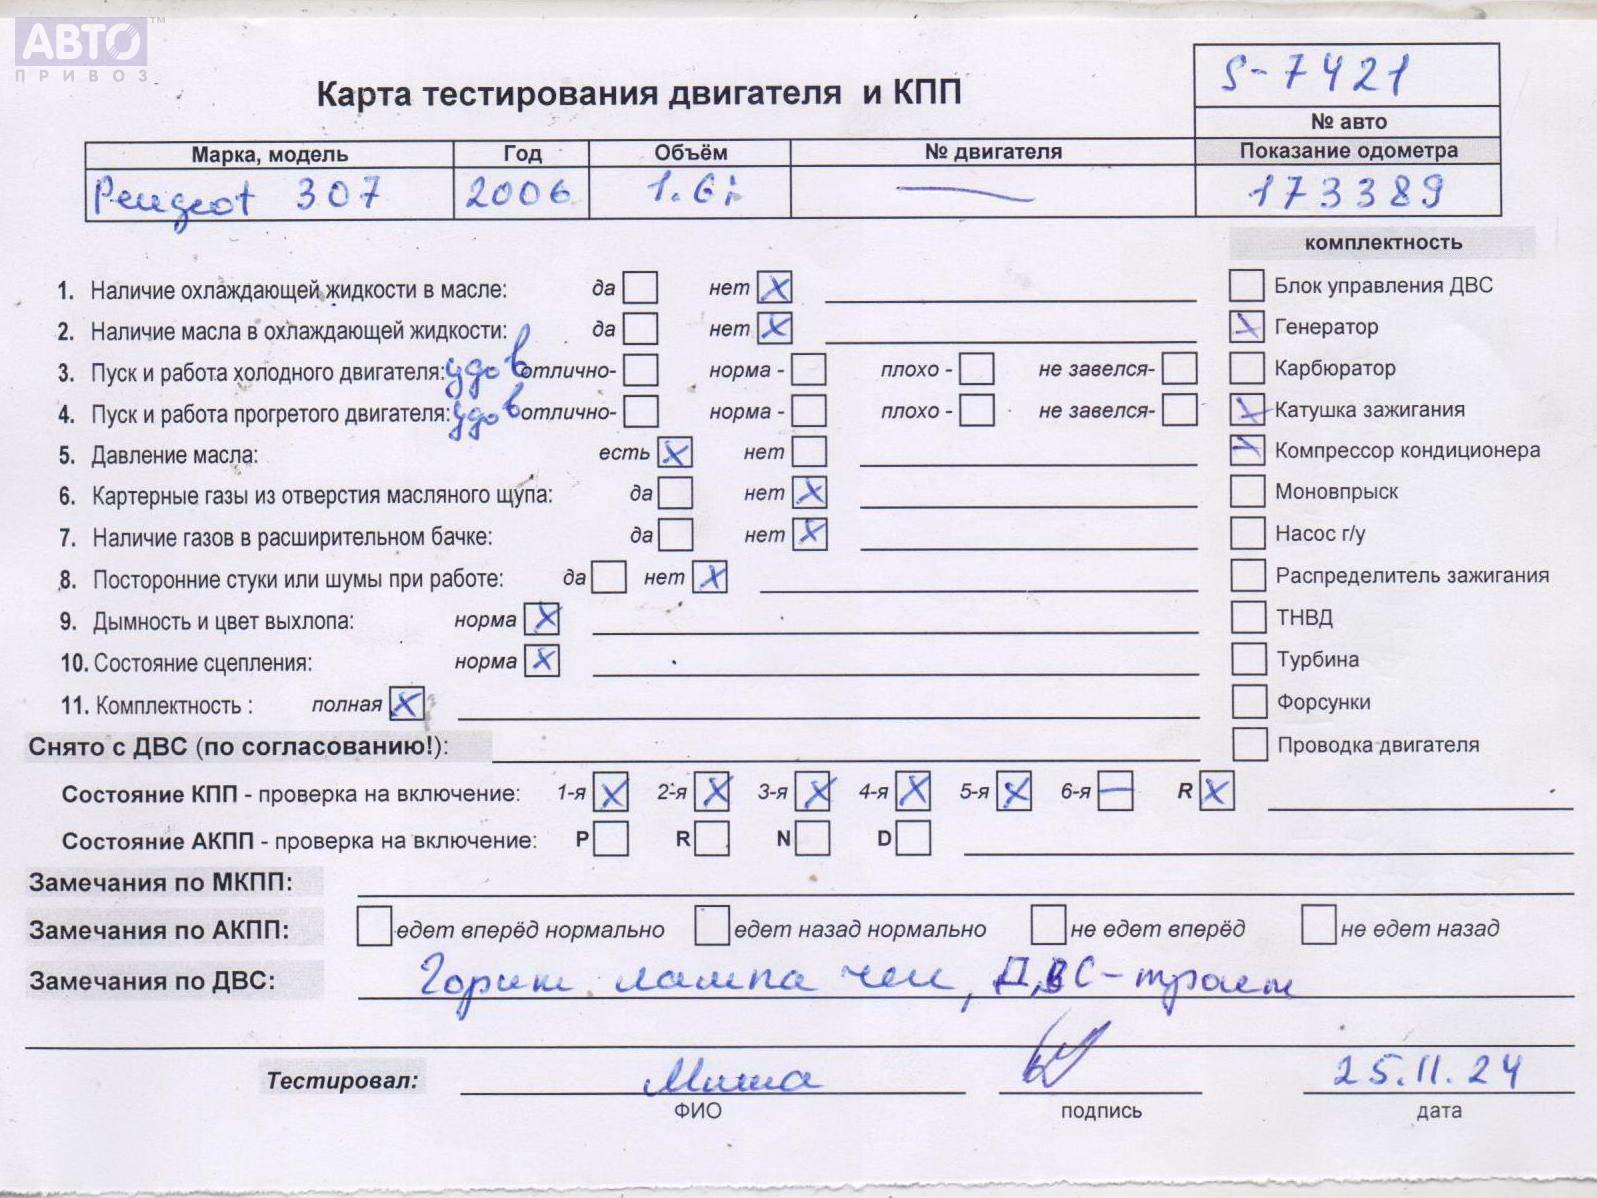 АВТО ™
ПРИВОЗ
S-7421
Карта тестирования двигателя и КПП
№ авто
Марка, модель Год Объём № двигателя Показание одометра
Peugeot 307 2006 1.6i — 173389
комплектность
1. Наличие охлаждающей жидкости в масле: да нет X
Блок управления ДВС
2. Наличие масла в охлаждающей жидкости: да нет X
Генератор
3. Пуск и работа холодного двигателя: удов отлично- норма - плохо - не завелся-
Карбюратор
4. Пуск и работа прогретого двигателя: удов отлично- норма - плохо - не завелся-
Катушка зажигания
5. Давление масла: есть X нет
Компрессор кондиционера
6. Картерные газы из отверстия масляного щупа: да нет X
Моновпрыск
7. Наличие газов в расширительном бачке: да нет X
Насос г/у
8. Посторонние стуки или шумы при работе: да нет X
Распределитель зажигания
9. Дымность и цвет выхлопа: норма X
ТНВД
10. Состояние сцепления: норма X
Турбина
11. Комплектность : полная X
Форсунки
Снято с ДВС (по согласованию!):
Проводка двигателя
Состояние КПП - проверка на включение: 1-я X 2-я X 3-я X 4-я X 5-я X 6-я — R X
Состояние АКПП - проверка на включение: P R N D
Замечания по МКПП:
Замечания по АКПП: едет вперёд нормально едет назад нормально не едет вперёд не едет назад
Замечания по ДВС: Горит лампа чек, ДВС-троит
Тестировал: Миша 25.11.24
ФИО подпись дата